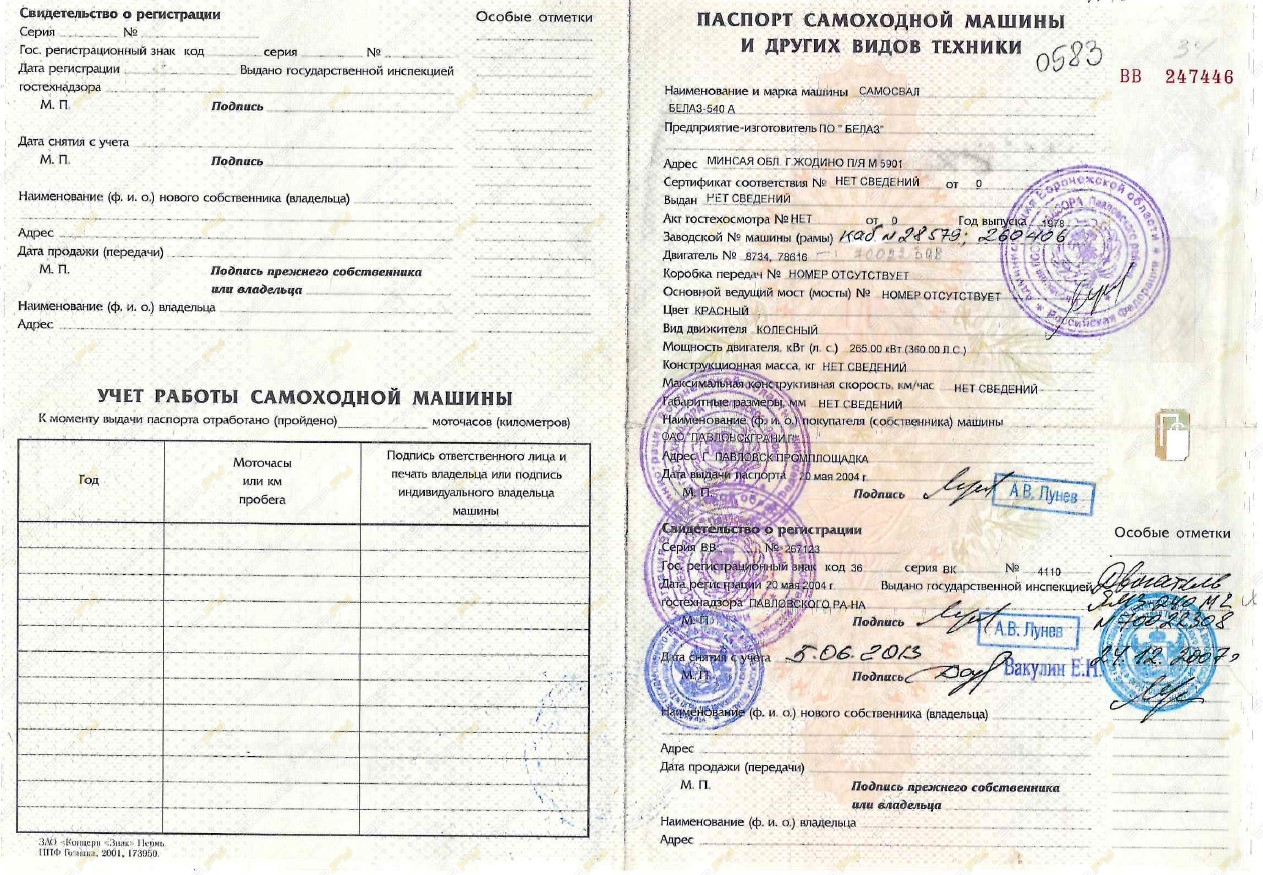 Свидетельство о регистрации
Особые отметки
Серия №
Гос. регистрационный знак код серия №
Дата регистрации Выдано государственной инспекцией
гостехнадзора
М. П. Подпись
Дата снятия с учета
М. П. Подпись
Наименование (ф. и. о.) нового собственника (владельца)
Адрес
Дата продажи (передачи)
М. П. Подпись прежнего собственника
или владельца
Наименование (ф. и. о.) владельца
Адрес
УЧЕТ РАБОТЫ САМОХОДНОЙ МАШИНЫ
К моменту выдачи паспорта отработано (пройдено) моточасов (километров)
Год
Моточасы
или км
пробега
Подпись ответственного лица и
печать владельца или подпись
индивидуального владельца
машины
ЗАО «Концерн «Знак» Пермь
ППФ Гознака, 2001, 173950.
ПАСПОРТ САМОХОДНОЙ МАШИНЫ
И ДРУГИХ ВИДОВ ТЕХНИКИ
0583
ВВ 247446
Наименование и марка машины САМОСВАЛ
БЕЛАЗ-540 А
Предприятие-изготовитель ПО " БЕЛАЗ"
Адрес МИНСАЯ ОБЛ. Г ЖОДИНО П/Я М 5901
Сертификат соответствия № НЕТ СВЕДЕНИЙ от 0
Выдан НЕТ СВЕДЕНИЙ
Акт гостехосмотра № НЕТ от 0 Год выпуска 1978
Заводской № машины (рамы) каб N 28579; 260406
Двигатель № 8734, 78616
Коробка передач № НОМЕР ОТСУТСТВУЕТ
Основной ведущий мост (мосты) № НОМЕР ОТСУТСТВУЕТ
Цвет КРАСНЫЙ
Вид движителя КОЛЕСНЫЙ
Мощность двигателя, кВт (л. с.) 265.00 кВт (360.00 Л.С.)
Конструкционная масса, кг НЕТ СВЕДЕНИЙ
Максимальная конструктивная скорость, км/час НЕТ СВЕДЕНИЙ
Габаритные размеры, мм НЕТ СВЕДЕНИЙ
Наименование (ф. и. о.) покупателя (собственника) машины
ОАО "ПАВЛОВСКГРАНИТ"
Адрес Г. ПАВЛОВСК ПРОМПЛОЩАДКА
Дата выдачи паспорта 20 мая 2004 г.
М. П. Подпись А.В. Лунев
Свидетельство о регистрации
Особые отметки
Серия ВВ № 267123
Гос. регистрационный знак код 36 серия ВК № 4110
Дата регистрации 20 мая 2004 г. Выдано государственной инспекцией
гостехнадзора ПАВЛОВСКОГО РА-НА
М. П. Подпись А.В. Лунев
Двигатель
ЯМЗ 240 М2
N 70022308
24.12.2007г
Дата снятия с учета 5.06.2013
М. П. Подпись Вакулин Е.Н.
Наименование (ф. и. о.) нового собственника (владельца)
Адрес
Дата продажи (передачи)
М. П. Подпись прежнего собственника
или владельца
Наименование (ф. и. о.) владельца
Адрес